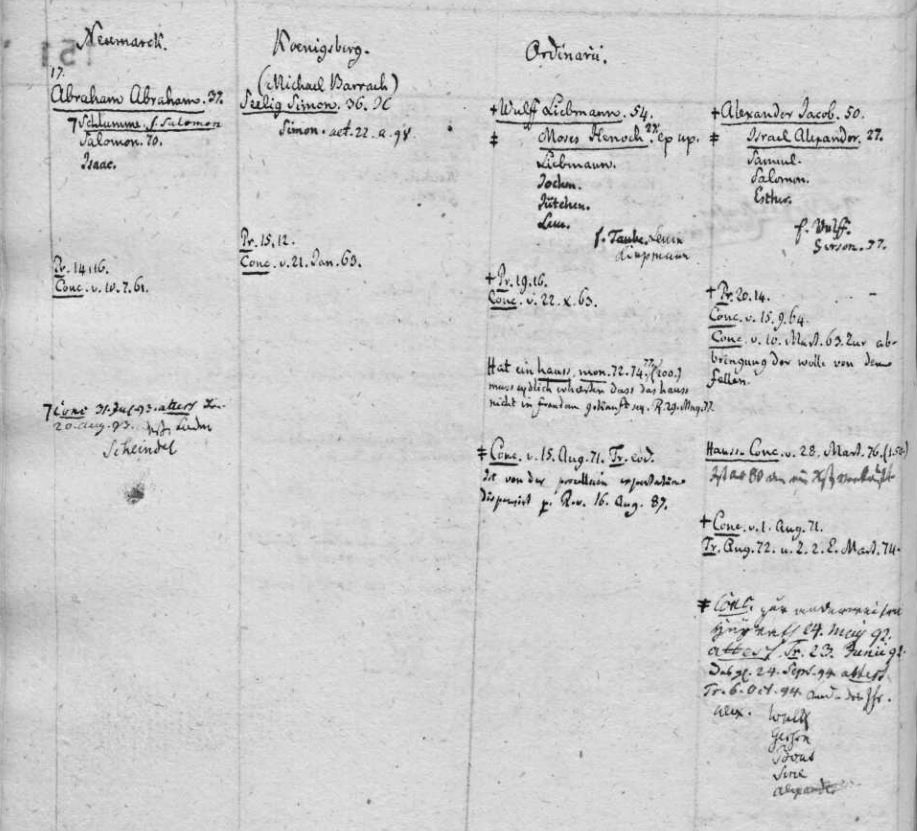 Neumarck.
17.
Abraham Abraham. 37.
Schlumme. f. Salomon
Salomon. 70.
Isaac.
Pr. 14,16.
Conc. v. 10. 7. 61.
Conc 31 Jul 93. attest
20. aug. 93.
Scheindel
Koenigsberg.
(Michael Barrach)
Seelig Simon. 36.
Simon. aet. 22. a. 98.
Pr. 15, 12.
Conc. v. 21. Jan. 63.
Ordinarii.
+ Wulff Liebmann. 54.
‡ Moses Henoch. ep up.
Liebmann.
Jochen.
Jütchen.
f. Taube
Pr. 19. 16.
Conc. v. 22. x. 63.
Hat ein hauss, mon. 72. 74, (100.)
muss eydlich erhärten dass das hauss
nicht in fraudem gekauft sey. R. 29. May. 77.
‡ Conc. v. 15. Aug. 71. Tr. eod.
Ist von der porcellain exportation
dispensirt p. R. v. 16. Aug. 87.
+ Alexander Jacob. 50.
‡ Israel Alexander. 27.
Samuel.
Salomon.
Esther.
f. Wulff.
Gerson. 37.
+ Pr. 20. 14.
Conc. v. 15. 9. 64.
Conc. v. 10. Mart. 63. Zur ab-
bringung der wolle von den
Fellen.
Hauss-Conc. v. 28. Mart. 76.
+ Conc. v. 1. Aug. 71.
Tr. Aug. 72. u. 2. 2. E. Mart. 74.
‡ Conc. zur
24. May 92.
attest Tr. 23. Junii 92.
24. Sept. 94 attest
Tr. 6. Oct. 94
alex. Wulff
Gerson